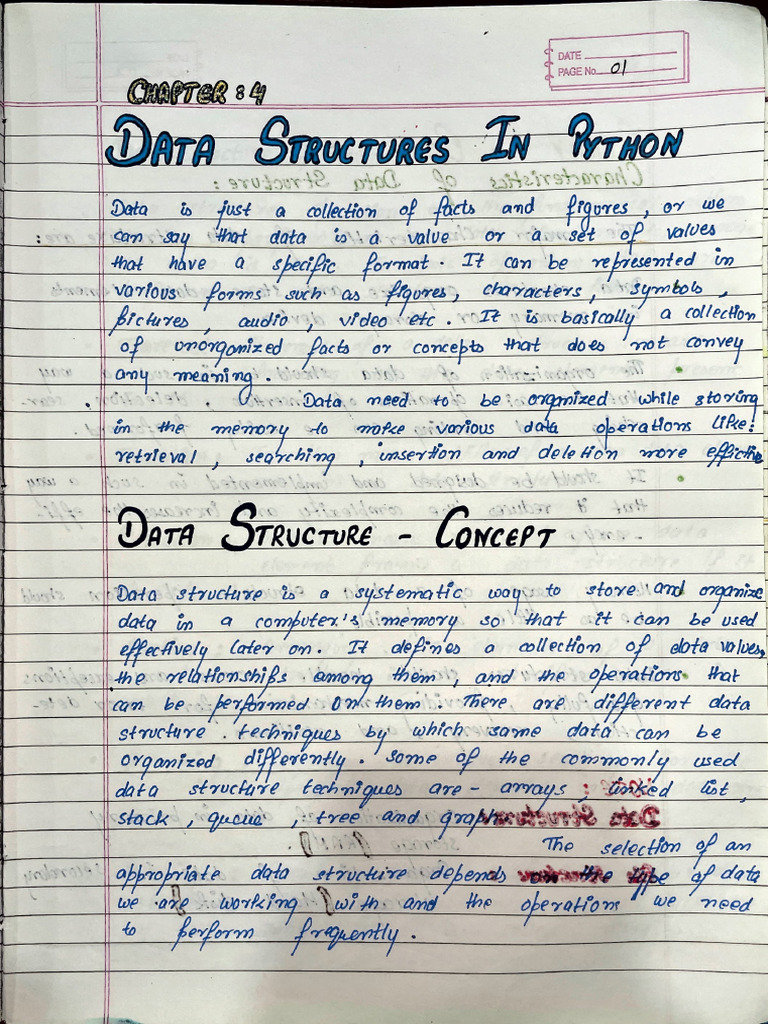 DATE
PAGE No. 01
CHAPTER : 4
DATA STRUCTURES IN PYTHON
Data is just a collection of facts and figures, or we
can say that data is a value or a set of values
that have a specific format. It can be represented in
various forms such as figures, characters, symbols,
pictures, audio, video etc. It is basically a collection
of unorganized facts or concepts that does not convey
any meaning.
Data need to be organized while storing
in the memory to make various data operations like:
retrieval, searching, insertion and deletion more effictive
DATA STRUCTURE - CONCEPT
Data structure is a systematic way to store and organize
data in a computer's memory so that it can be used
effectively later on. It defines a collection of data values,
the relationships among them, and the operations that
can be performed on them. There are different data
structure techniques by which same data can be
organized differently. Some of the commonly used
data structure techniques are - arrays, linked list,
stack, queue, tree and graph.
The selection of an
appropriate data structure depends on the type of data
we are working with and the operations we need
to perform frequently.